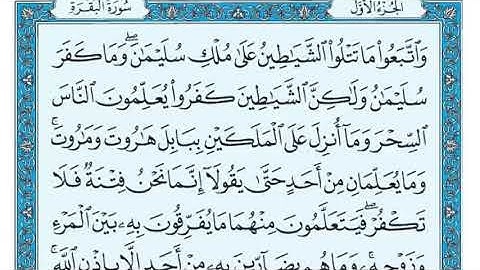 الجزء الأول
سورة البقرة
وَاتَّبَعُوا مَا تَتْلُوا الشَّيَاطِينُ عَلَىٰ مُلْكِ سُلَيْمَانَ ۖ وَمَا كَفَرَ
سُلَيْمَانُ وَلَٰكِنَّ الشَّيَاطِينَ كَفَرُوا يُعَلِّمُونَ النَّاسَ
السِّحْرَ وَمَا أُنزِلَ عَلَى الْمَلَكَيْنِ بِبَابِلَ هَارُوتَ وَمَارُوتَ ۚ
وَمَا يُعَلِّمَانِ مِنْ أَحَدٍ حَتَّىٰ يَقُولَا إِنَّمَا نَحْنُ فِتْنَةٌ فَلَا
تَكْفُرْ ۖ فَيَتَعَلَّمُونَ مِنْهُمَا مَا يُفَرِّقُونَ بِهِ بَيْنَ الْمَرْءِ
وَزَوْجِهِ ۚ وَمَا هُم بِضَارِّينَ بِهِ مِنْ أَحَدٍ إِلَّا بِإِذْنِ اللَّهِ ۚ